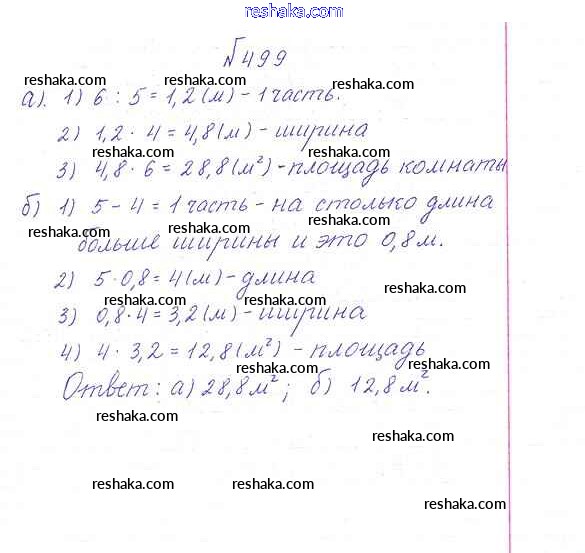 reshaka.com
№499
reshaka.com reshaka.com reshaka.com
а). 1) 6 : 5 = 1,2 (м) - 1 часть.
2) 1,2 · 4 = 4,8 (м) - ширина
reshaka.com reshaka.com
3) 4,8 · 6 = 28,8 (м²) - площадь комнаты
б) 1) 5 - 4 = 1 часть - на столько длина
reshaka.com reshaka.com reshaka.com
больше ширины и это 0,8 м.
2) 5 · 0,8 = 4 (м) - длина
reshaka.com reshaka.com reshaka.com
3) 0,8 · 4 = 3,2 (м) - ширина
4) 4 · 3,2 = 12,8 (м²) - площадь
reshaka.com reshaka.com
Ответ: а) 28,8 м²; б) 12,8 м².
reshaka.com
reshaka.com
reshaka.com reshaka.com
reshaka.com